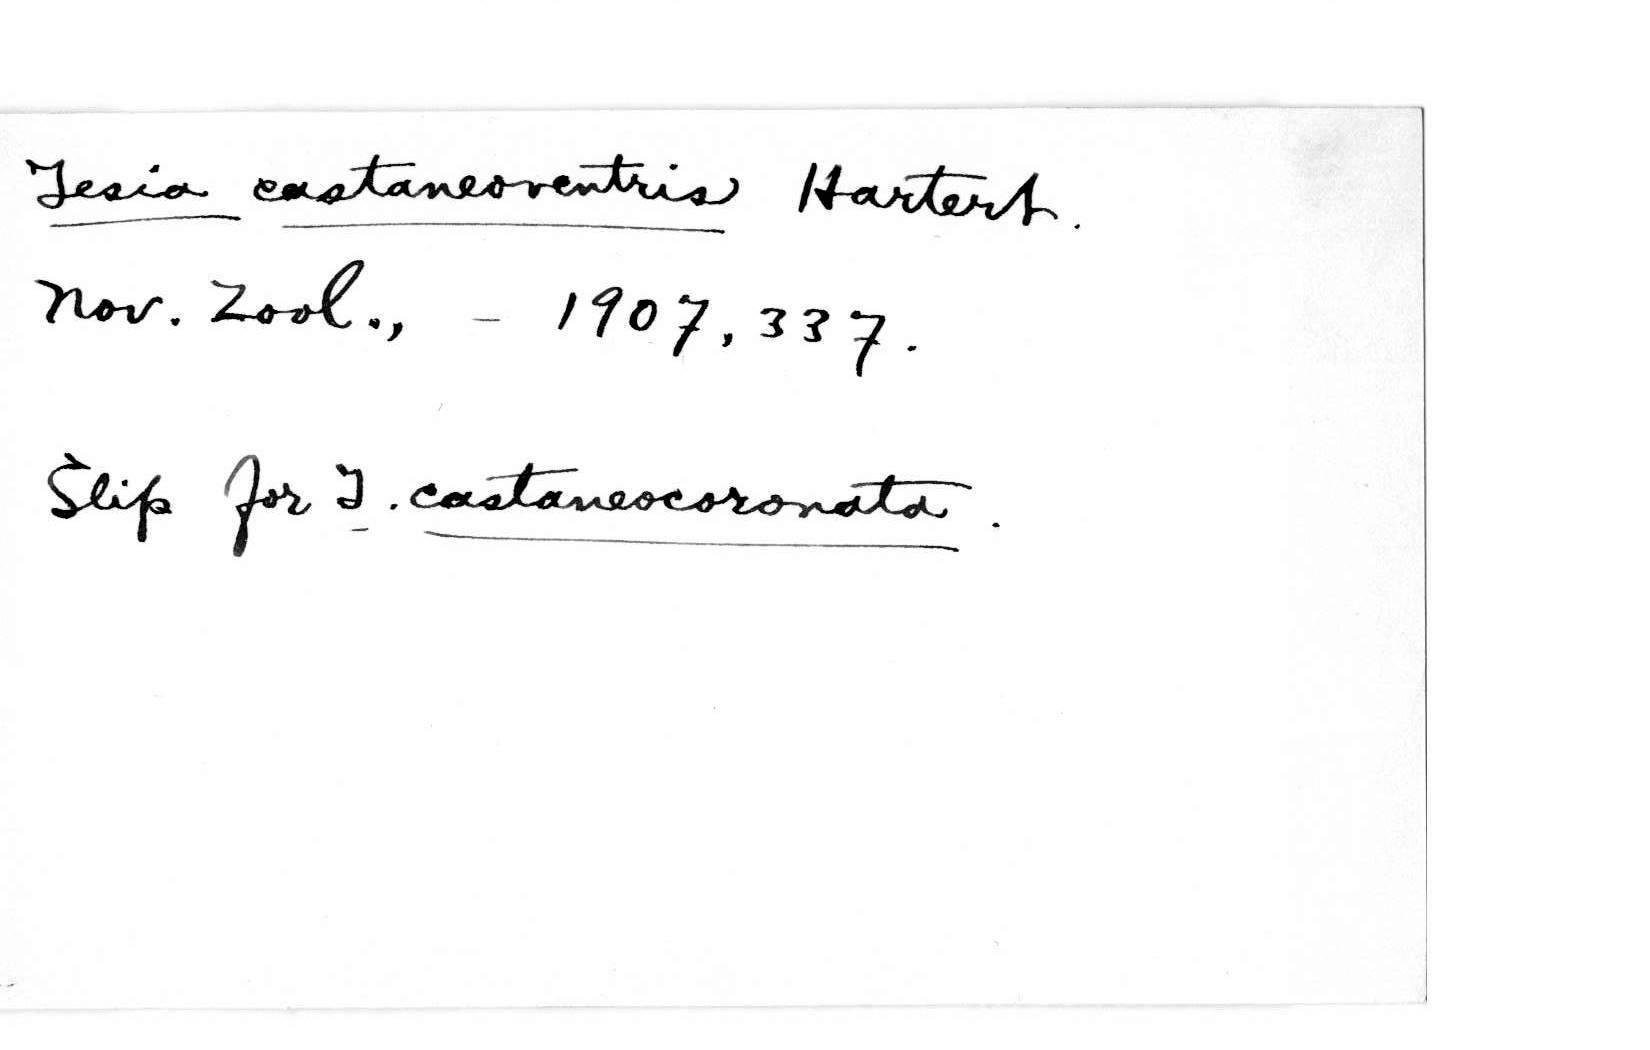 Tesia castaneoventris Hartert.
Nov. Zool., - 1907, 337.
Slip for T. castaneocoronata.